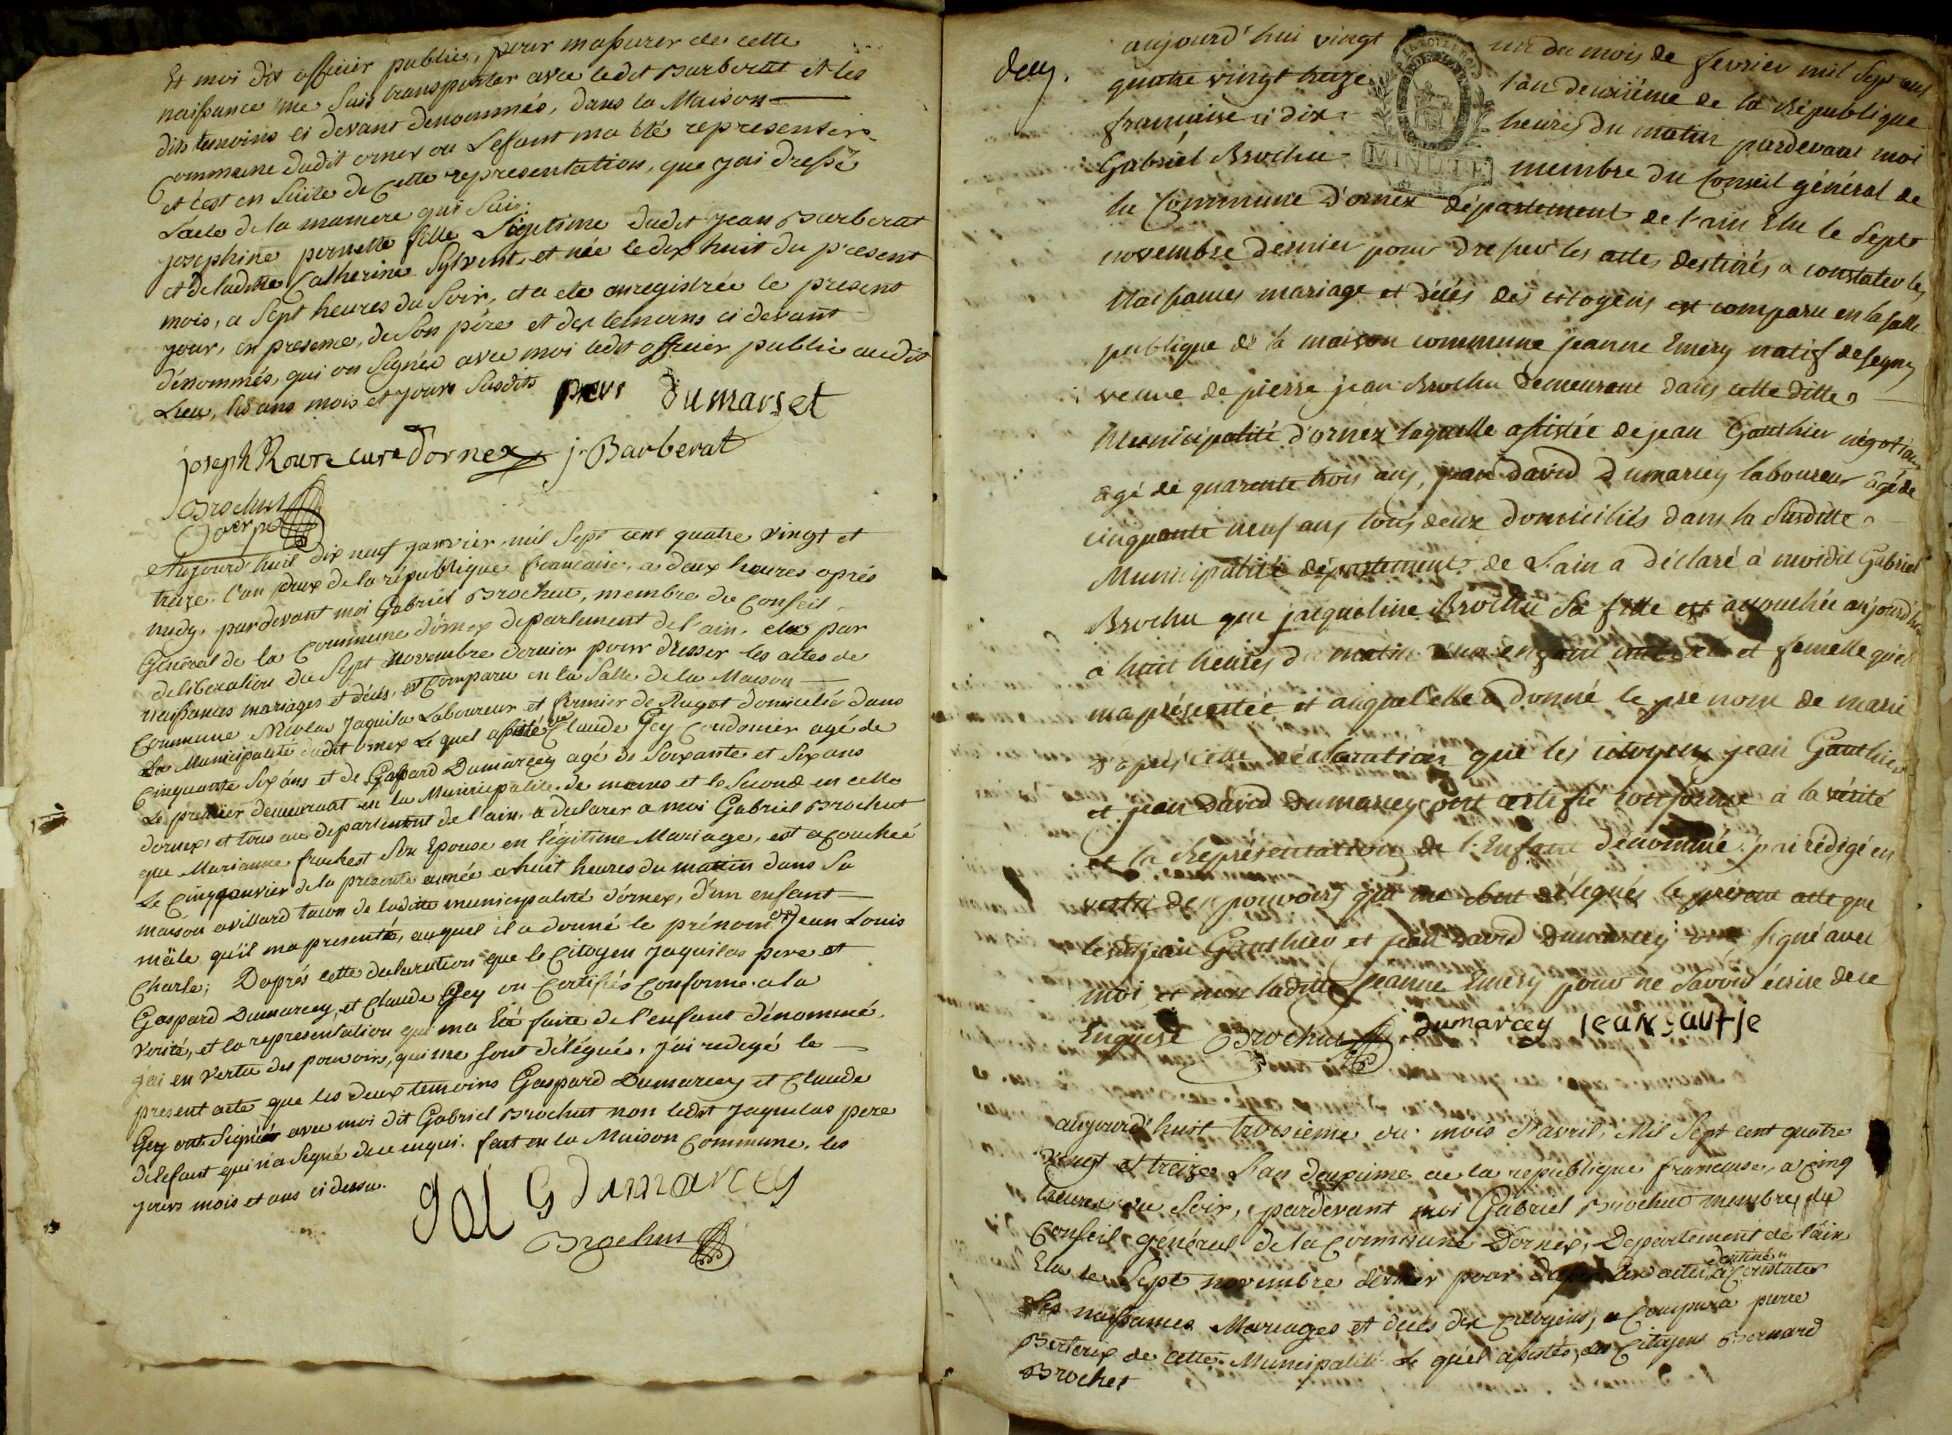 Et moi dit officier publics, pour m'assurer de cette
naissance me suis transporter avec ledit Barberat et les
dits temoins ci devant denommés, dans la Maison
Commune dudit ornex ou Lefant ma été representer
et cest en Suite de Cette representation, que jai dressé
Lacte de la maniere qui Suis.
josephine pernette fille Légitime dudit jean Barberat
et de laditte Catherine Sylvent, et née le dix huit du present
mois, a Sept heures du Soir, et a ete enregistrée le present
jour, en presence, de Son pére et des temoins ci devant
dénommés, qui on Signéz avec moi ledit officier public audit
Lieu, les ans mois et jours Susdits
dumarset
joseph Roure cure d'ornex j. Barberat
Brochut
Aujourd'huit dix neuf janvier, mil Sept cent quatre vingt et
treize. l'an deux de la république francaise, a deux heures aprés
midy, pardevant moi Gabriel Brochut, membre du Conseil
Général de la Commune d'ornex departement de l'ain, elu par
deliberation du Sept Novembre dernier pour dresser les actes de
naissances mariages et décès, est Comparu en la Salle de la Maison
Commune Nicolas Jaquila Laboureur et fermier de domicilié dans
La Municipalité dudit ornex Lequel assisté de Claude Gey Cordonier agé de
Cinquante Six ans et de Gaspard Dumarcey agé de Soixante et Six ans
Le premier demeurant en la Municipalité de moens et le Second en celle
dornex, et tous au departement de l'ain, a declarer a moi Gabriel Brochut
que Marianne frochest Son Epouse en légitime Mariage, est acouchée
Le Cinq janvier de la presente année a huit heures du mattin dans Sa
maison a villard tacon de laditte municipalité d'ornex, d'un enfant
mâle qu'il ma presenté, auquel il a donné le prénom de Jean Louis
Charle; D'aprés cette declaration que le Citoyen Jaquilas pere et
Gaspard Dumarcey, et Claude Gey on Certifiés Conforme a la
vérité, et la representation qui ma été faite de l'enfant dénommé,
j'ai en vertu des pouvoirs, qui me Sont délégués, j'ai redigé le
present acte que les deux temoins Gaspard Dumarcey et Claude
Gey ont Signés avec moi dit Gabriel Brochut non ledit Jaquilas pere
de lefant qui n'a Signé de ce enquis. fait en la Maison Commune, les
jours mois et ans ci dessu.
G dumarcey
Brochut
aujourd'hui vingt un du mois de fevrier mil Sept cent
quatre vingt treize l'an deuxième de la République
française à dix heures du matin pardevant moi
Gabriel Brochu membre du Conseil général de
MINUTE
la Commune d'ornex département de l'ain Elu le Sept
novembre dernier pour dresser les actes destinés a constater les
Naissances mariage et décés des citoyens est comparu en la Salle
publique de la maison commune jeanne Emery natif de Segny
veuve de pierre jean Brochu demeurant dans cette ditte
Municipalité d'ornex laquelle assistée de jean Gauthier négotian
âgé de quarente trois ans, jean david Dumarcey laboureur âgé de
cinquante neuf ans tous deux domiciliés dans la Susditte
Municipalité département de L'ain a déclaré à moi dit Gabriel
Brochu que jacqueline Brochu Sa fille est accouchée aujourd'hui
à huit heures du matin d'un enfant et femelle qu'elle
ma présentée et auquel elle a donné le prenom de marie
d'après cette déclaration que les citoyens jean Gauthier
et jean David dumarcey ont certifié conforme à la vérité
et la Représentation de l'Enfant dénommé. j'ai rédigé en
vertu des pouvoirs qui me sont délégués le présent acte que
lesdit jean Gauthier et jean david dumarcey ont signé avec
moi et non laditte jeanne Emery pour ne Savoir écrire de ce
Enquise Brochut dumarcey
aujourd'huit troisieme du mois d'avril, Mil Sept cent quatre
vingt et treize L'an deuxieme de la republique francaise, a cinq
heures du Soir, pardevant moi Gabriel Brochut membre du
Conseil général de la Commune D'ornex, Departement de l'ain
Elu le Sept novembre dernier pour les actes destiné a Constater
Les naissances Mariages et deces des Citoyens, a Comparu pierre
de cette Municipalité Le quel assistés, des Citoyens Bernard
Brochet